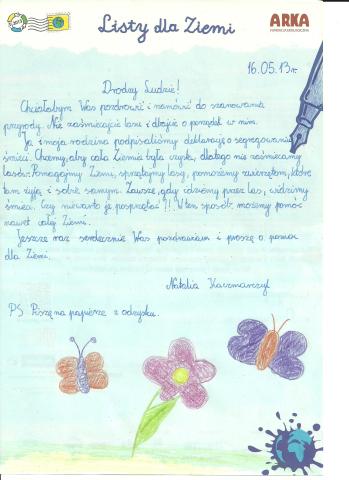 Listy dla Ziemi
ARKA
16.05.13r.
Drodzy Ludzie!
Chciałabym Was pozdrowić i namówić do szanowania
przyrody. Nie zaśmiecajcie lasu i dbajcie o porządek w nim.
Ja i moja rodzina podpisaliśmy deklarację o segregowaniu
śmieci. Chcemy, aby cała Ziemia była czysta, dlatego nie zaśmiecamy
lasów. Pomagajmy Ziemi, sprzątajmy lasy, pomożemy zwierzętom, które
tam żyją i sobie samym. Zawsze, gdy idziemy przez las, widzimy
śmieci. Czy niewarto je posprzątać?! W ten sposób możemy pomóc
nawet całej Ziemi.
Jeszcze raz serdecznie Was pozdrawiam i proszę o pomoc
dla Ziemi.
Natalia Kaczmarczyk
PS Piszę na papierze z odzysku.